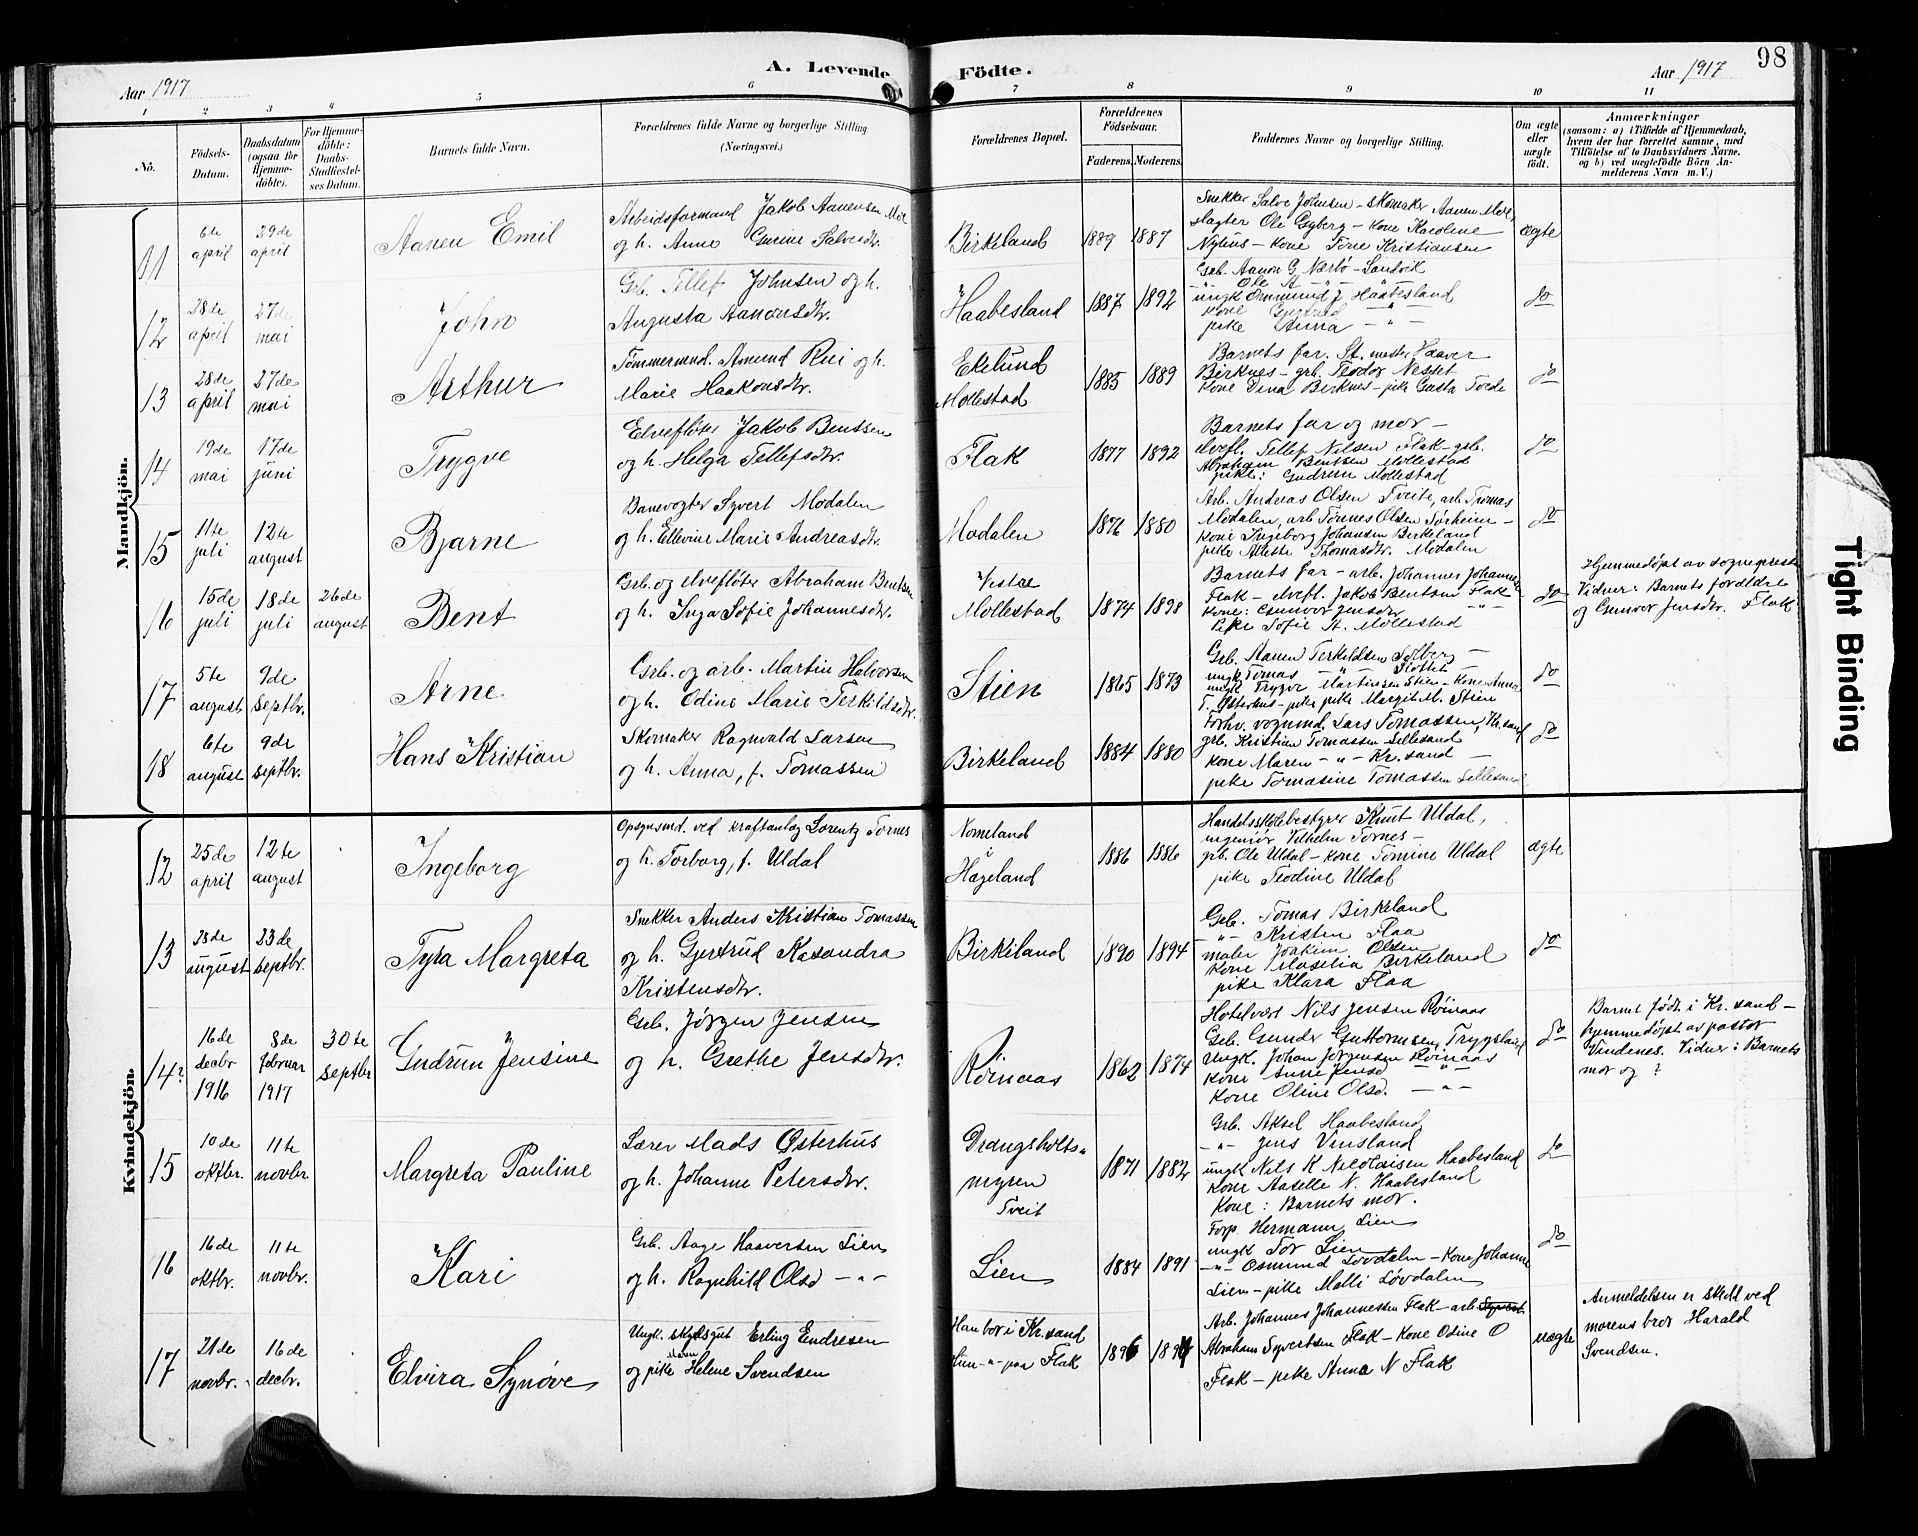 98
Aar 1917
A. Levende Födte.
Aar 1917
1 2 3 4 5 6 7 8 9 10 11
No.
Födsels-Datum.
Daabsdatum (ogsaa for Hjemmedöbte).
For Hjemmedöbte: Daabs-Stadfæstelses Datum.
Barnets fulde Navn.
Forældrenes fulde Navne og borgerlige Stilling. (Næringsvei.)
Forældrenes Bopæl.
Forældrenes Födselsaar.
Faderens. Moderens.
Faddernes Navne og borgerlige Stilling.
Om ægte eller uægte födt.
Anmærkninger
(saasom: a) i Tilfælde af Hjemmedaab, hvem der har forrettet samme, med Tilföielse af to Daabsvidners Navne, og b) ved uægtefödte Börn Anmelderens Navn m. V.)
Mandkjön.
11
6te april
29de april
Aanen Emil
Arbeidsformand Jakob Aanensen Moe
og h. Anne Gurine Salvesdtr.
Birkeland
1889 1887
Snekker Salve Johnsen – skomaker Aanen Moe,
slagter Ole Gyberg – Kone Karolene
Nylius – Kone Tone Kristiansen
ægte
12
28de april
27de mai
John
Grb. Tellef Johnsen og h.
Augusta Aanonsdtr.
Haabesland
1887 1892
Grb. Aanon G. Nærbø – Sandvik
–"– Ole A –"– –"–
ungk Ommund J. Haabesland
Kone Gugrid –"–
pike Anna –"–
do
13
28de april
27de mai
Arthur
Tømmermnd. Amund Rui og h.
Marie Haakonsdtr.
Ekelund
Mollestad
1885 1889
Barnets far. St. mester Haaver
Birknes – grb. Teodor Nesset
Kone Dina Birknes – pike Gusta Tvede
do
14
19de mai
17de juni
Trygve
Elvefløter Jakob Bentsen
og h. Helga Tellefsdtr.
Flak
1877 1892
Barnets far og mor –
elvefl. Tellef Nilsen Flak – grb.
Abraham Bentsen Mollestad
pike: Gudrun Mollestad
do
15
11te juli
12te august
Bjarne
Banevogter Syvert Modalen
og h. Ellevine Marie Andreasdtr.
Modalen
1876 1880
Arb. Andreas Olsen Tveite, arb. Thomas
Modalen, arb Tønnes Olsen Sørheim –
Kone Ingeborg Johansen Birkeland
pike Aleste Thomasdtr. Modalen
do
16
15de juli
18de juli
26de august
Bent
Grb. og elvefløter Abraham Bentsen
og h. Inga Sofie Johannesdtr.
Vestre
Mollestad
1874 1898
Barnets far – arb. Johannes Johannesen
Flak – elvefl. Jakob Bentsen Flak
Kone: Gunvor Jensdtr –"–
Pike Sofie A. Mollestad
do
Hjemmedøpt av sogneprest
Vidner: Barnets forældre
og Gunvor Jensdtr. Flak
17
5te august
9de septbr.
Arne
Grb. og arb. Martin Halvorsen
og h. Odine Marie Terkildsdtr.
Stien
1865 1873
Grb. Aanen Terkildsen Solberg –
ungk Tomas –"– Flottet –
ungk Trygve Martinsen Stien – Kone Anna
T. Østerhus – pike Margit M. Stien
do
18
6te august
9de septbr.
Hans Kristian
Skomaker Ragnvald Larsen
og h. Anna, f. Tomassen
Birkeland
1884 1880
Forhv. vognmd. Lars Tomassen, Kr.sand
grb. Kristian Tomassen Lillesand
Kone Maren –"– Kr.sand –
pike Tomasine Tomassen Lillesand
do
Kvindekjön.
12
25de april
12te august
Ingeborg
Opsynsmd. ved kraftanlæg Lorentz Tornes
og h. Torborg, f. Uldal
Nomeland
i
Hægeland
1886 1886
Handelsskolebestyrer Knut Uldal,
ingeniør Vilhelm Tornes –
grb. Ole Uldal – kone Tomine Uldal
pike Teodine Uldal
ægte
13
25de august
23de septbr.
Tyra Margreta
Snekker Anders Kristian Tomassen
og h. Gjertrud Kasandra
Kristensdtr.
Birkeland
1890 1894
Grb. Tomas Birkeland
–"– Kristen Flaa
maler Joakim Olsen
Kone Maselia Birkeland
pike Klara Flaa
do
14?
16de decbr 1916
8de februar 1917
30te septbr
Gudrun Jensine
Grb. Jørgen Jensen
og h. Grethe Jensdtr.
Røinaas
1862 1874
Hotelvert Nils Jensen Røinaas
Grb. Gunder Guttormsen Trygsland
Ungk. Johan Jørgensen Røinaas
Kone Anne Jensd –"–
Kone Oline Olsd. –"–
do
Barnet født i Kr.sand –
hjemmedøpt av pastor
Vindenes. Vidner: Barnets
mor og ?
15
10de oktbr.
11te novbr.
Margreta Pauline
Lærer Mads Østerhus
og h. Johanne Petersdtr.
Drangsholts-
myren
Tveit
1871 1882
Grb. Aksel Haabesland
–"– Jens Vinsland
ungk Nils K Nicolaisen Haabesland
Kone Aaselle N. Haabesland
Kone: Barnets mor.
do
16
16de oktbr.
11te novbr.
Kari
Grb. Aage Haaversen Lien
og h. Ragnhild Olsd –"–
Lien
1884 1891
Forp. Hermann Lien
ungk Tor Lien
–"– Osmund Løvdalen – Kone Johanne
Lien – pike Malli Løvdalen
do
17
21de novbr.
16de decbr.
Elvira Synøve
Ungk. skydsgut Erling Endresen
og pike Maren Helene Svendsen
Han bor i Kr.sand
Hun –"– paa Flak
1896 1894
Arb. Johannes Johannessen Flak – arb
Abraham Syvertsen Flak – Kone Odine O
Flak – pike Anna N Flak
uægte
Anmeldelsen er skedt ved
morens bror Harald
Svendsen.
Tight Binding